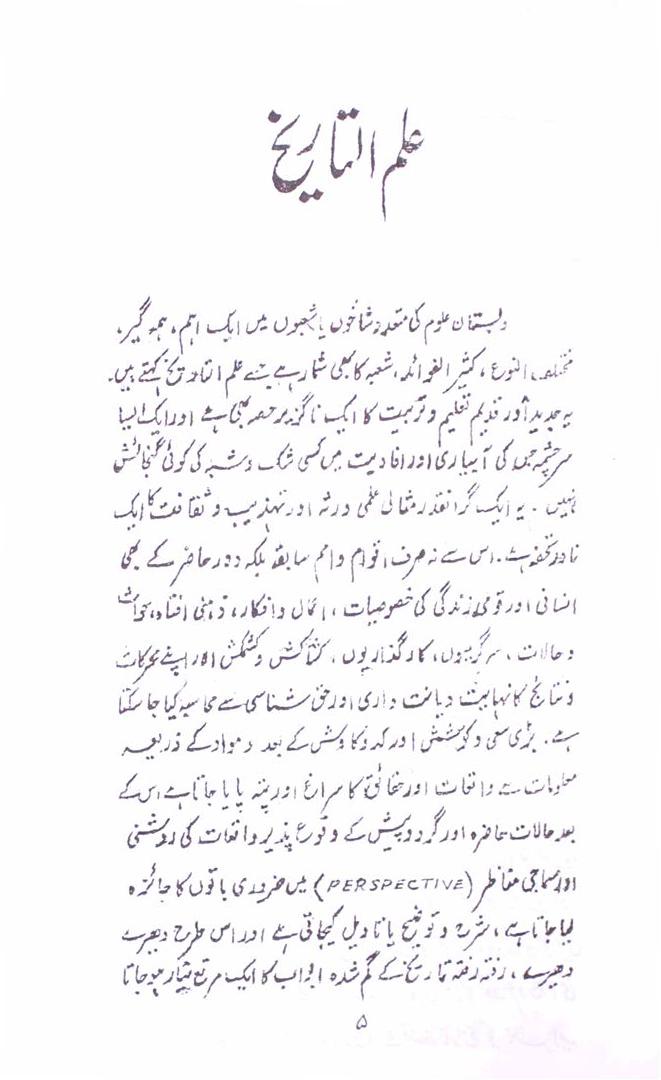 علم التاریخ
دبستان علوم کی متعدد شاخوں یا شعبوں میں ایک اہم، ہمہ گیر،
مختلف النوع، کثیر الفوائد، شعبہ کا بھی شمار ہے جسے علم التاریخ کہتے ہیں۔
یہ جدید اور قدیم تعلیم و تربیت کا ایک ناگزیر حصہ بھی ہے اور ایک ایسا
سرچشمہ جس کی آبیاری اور افادیت میں کسی شک و شبہ کی کوئی گنجائش
نہیں۔ یہ ایک گرانقدر مثالی علمی ورثہ اور تہذیب و ثقافت کا ایک
نادر تحفہ ہے۔ اس سے نہ صرف اقوام و امم سابقہ بلکہ دور حاضر کے بھی
انسانی اور قومی زندگی کی خصوصیات، اعمال و افکار، ذہنی افتاد،
و حالات، سرگرمیوں، کارگذاریوں، کشاکش و کشمکش اور اپنے محرکات
و نتائج کا نہایت دیانت داری اور حق شناسی سے محاسبہ کیا جا سکتا
ہے۔ بڑی سعی و کوشش اور کدوکاوش کے بعد مواد کے ذریعہ
معلومات سے واقعات اور حقائق کا سراغ اور پتہ پایا جاتا ہے اس کے
بعد حالات حاضرہ اور گردوپیش کے وقوع پذیر واقعات کی روشنی
اور سماجی مناظر (PERSPECTIVE) میں ضروری باتوں کا جائزہ
لیا جاتا ہے، شرح و توضیح یا تاویل کیجاتی ہے اور اس طرح دھیرے
دھیرے، رفتہ رفتہ تاریخ کے گم شدہ ابواب کا ایک مرقع تیار ہو جاتا
۵